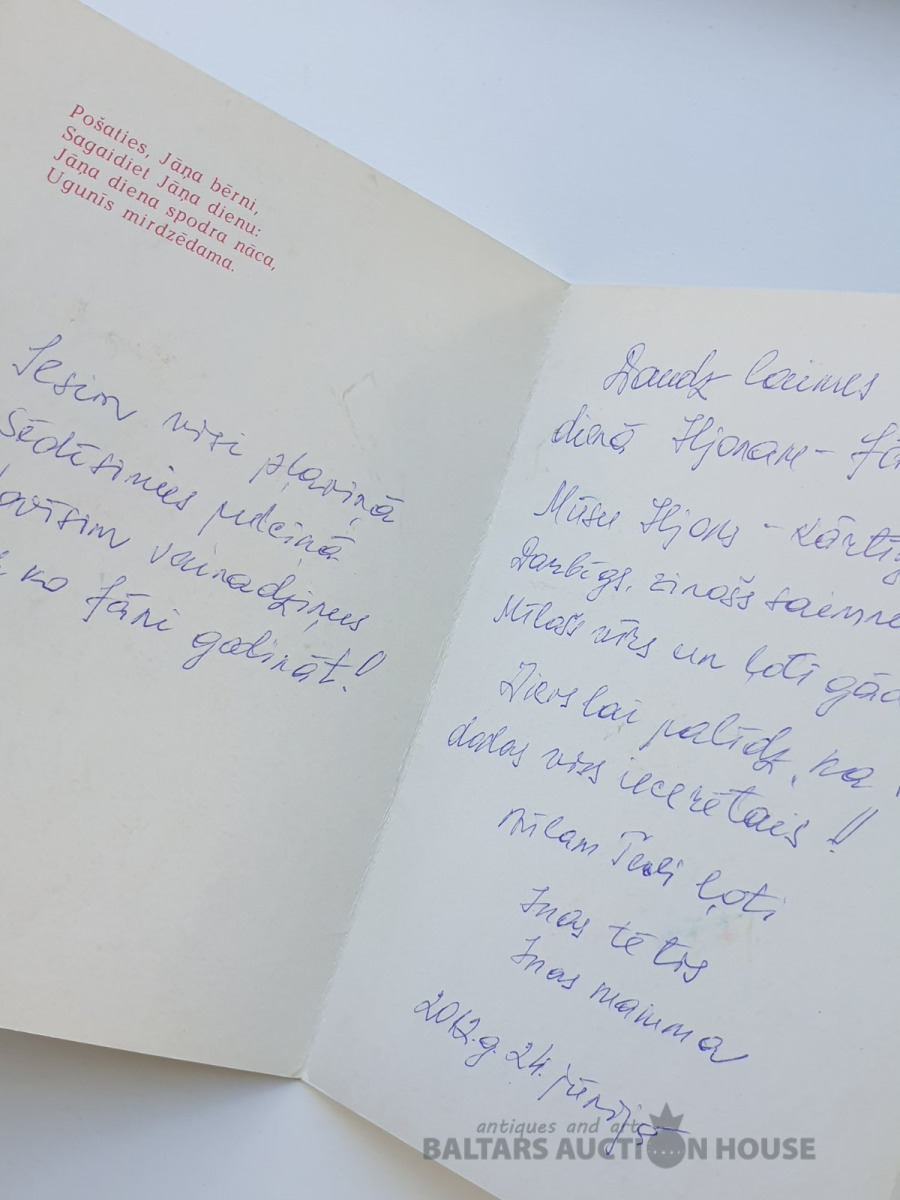 Pošaties, Jāņa bērni,
Sagaidiet Jāņa dienu:
Jāņa diena spodra nāca,
Ugunīs mirdzēdama.
Iesim visi pļaviņā
Sēdīsimies pulciņā
vīsim vainadziņus
ko Jāni godināt!
Daudz laimes
dienā Iljonam -
Mūsu Iljons - kārtīg
Darbīgs, zinošs saimne
Mīlošs vīrs un ļoti gād
Dievs lai palīdz, ka
dodas viss iecerētais!!
Mīlam Tevi ļoti
Inas tētis
Inas mamma
2012.g. 24. jūnijā
antiques and arts
BALTARS AUCTION HOUSE